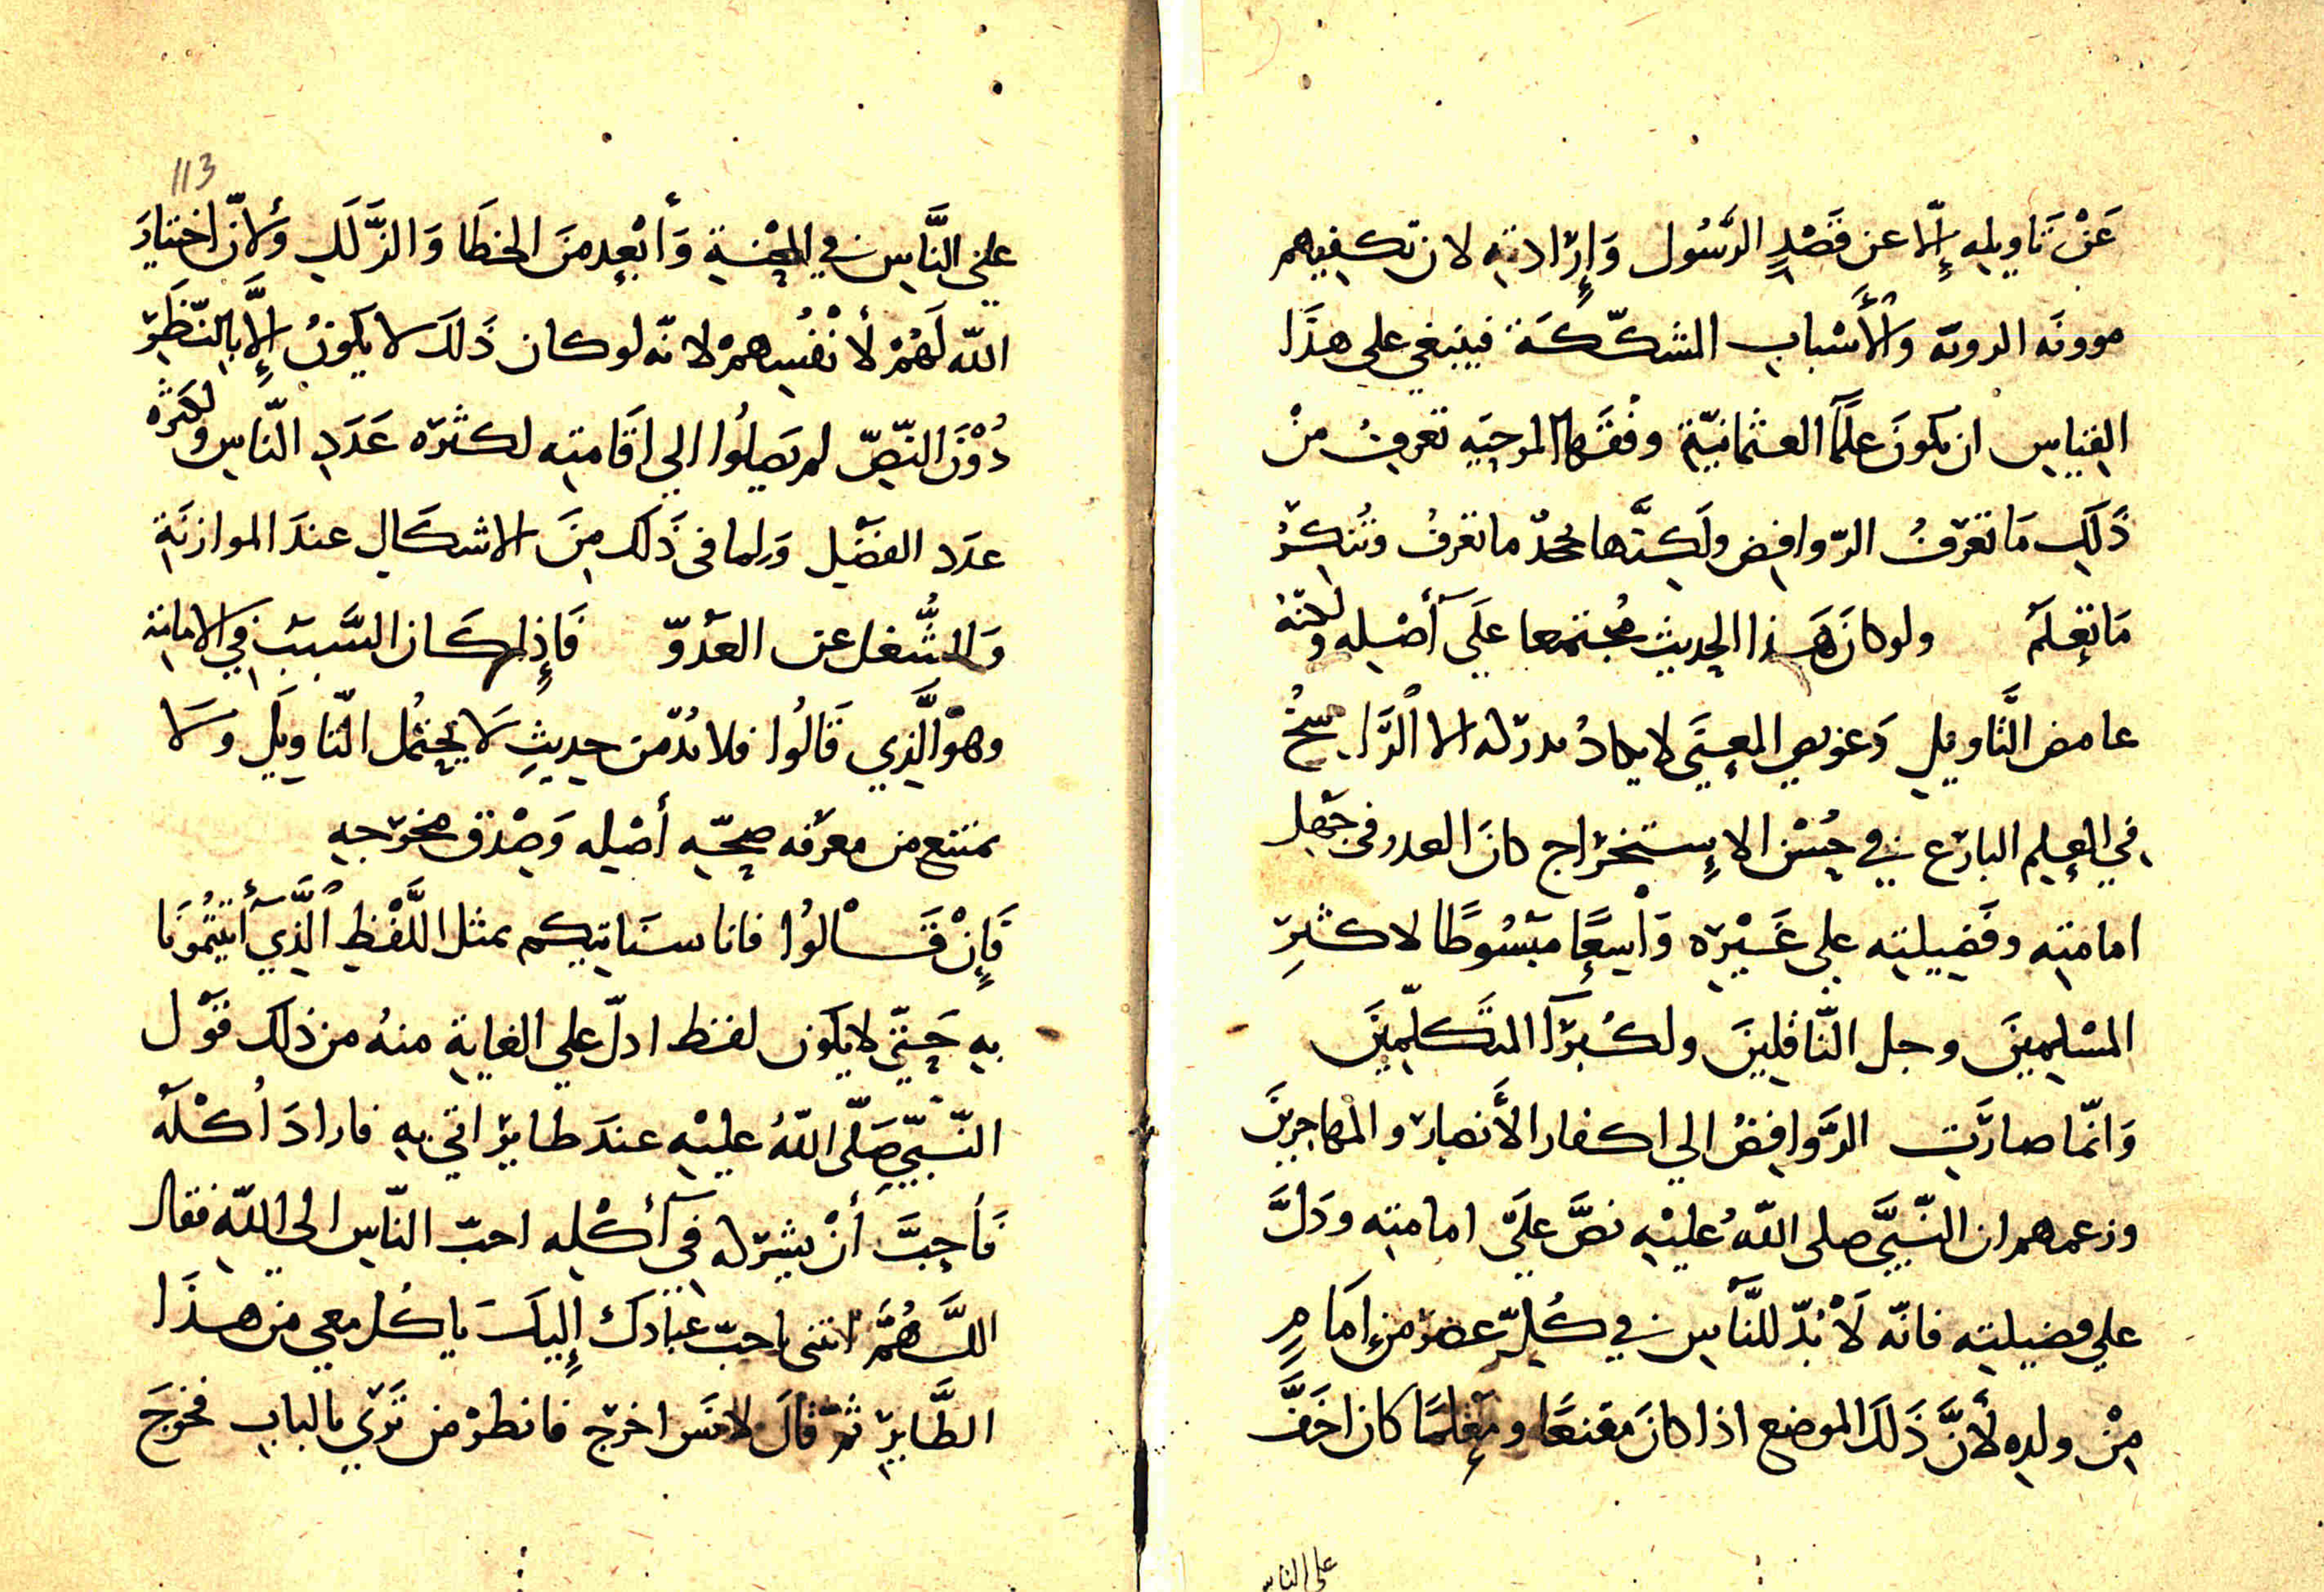 عَنْ تَاويله إِلّا عن قَصْدِ الرَّسُول وَإِرَادته لان تكفيهم
موونَه الرويّة وَالأَسْباب المشكّكَة فينبغي على هذَا
القياس ان يكونَ علمَآ العثمانيّة وفُقَهَآ المرجيَه تعرفُ منْ
ذَلِكَ مَا تعَرفُ الرّوافِض ولَكِنَّها تجحدُ ما تعَرفُ وتُنكِرُ
مَا تعلَم ولو كانَ هَذا الحديث مُجتمعا علَى أَصْله ولكنّهُ
غامض التَّاويل وَعَويص المعنَى لا يكادُ يدركه الا الرَّاسخُ
في العِلم البارَع في حُسْن الاِستخرَاج كانَ العذر في جَهْل
امامته وفَضيلته على غَيْرَه وَاسِعًا مَبْسُوطًا لاكثرِ
المسْلِمينَ وجل النَّاقِلينَ ولكُبَرَآ المتَكلّمِينَ
وَانّما صارَت الرَّوافِضُ الي اكفار الأَنصارَ والمهاجرينَ
وزعمهم ان النَّبيَّ صلى اللّهُ عليْهِ نصَّ علَى امامته ودَلَّ
على فضيلته فانّه لَا بُدّ للنَّاس في كُلّ عصْر من إِمَامٍ
مِنْ ولده لأَنَّ ذَلكَ الموضع اذا كانَ مقنعًا ومعْلمًا كان اخَفَّ
على الناس
113
علي النَّاس في المِحْنَةِ وَأبْعد منَ الخطَا وَالزَّلَلِ وَلأنّ اختيَارَ
اللّه لَهُمْ لأنْفُسِهمْ لانّه لو كان ذَلكَ لا يكونُ إِلَّا بالنَّظَرِ
دُوْنَ النّصّ لم يَصلُوا الي اقَامته لكثرَه عَدَدِ النَّاس ولكثره
عدَد الفضْل وَلما في ذَلكَ مِنَ الاشكَالِ عندَ الموازنَةِ
وَالشُّغل عن العدْوّ فَإِذا كَان السَّببَ في الامامة
وهوَ الَّذِي قَالُوا فلا بُدّ من حديثٍ لَا يحتمُل التّاويلَ وَلا
يمتنع من معرَفه صحّه أصْله وَصِدْق مخرَجه
فَإِنْ قَالُوا فانا سنَاتيكم بمثل اللَّفْظِ الَّذِيَ أَتيتُمُونَا
به حَتّى لا يكون لفظ ادلّ علي الغايةِ منهُ من ذلك قوْل
النّبيِّ صَلّى اللّهُ عليْهِ عندَ طايرٍ اتي به فارادَ أكْلَه
فَأحبَّ أنْ يشرَكه في أَكْله احبّ النّاس الى اللّه فقال
اللَّهُمَّ ائتنى باحبّ عبَادكَ إِليكَ ياكُل معي من هذَا
الطَّايرِ ثمّ قالَ لانَس اخرَج فانظرْ من تَرَي بالباب فخرَجَ